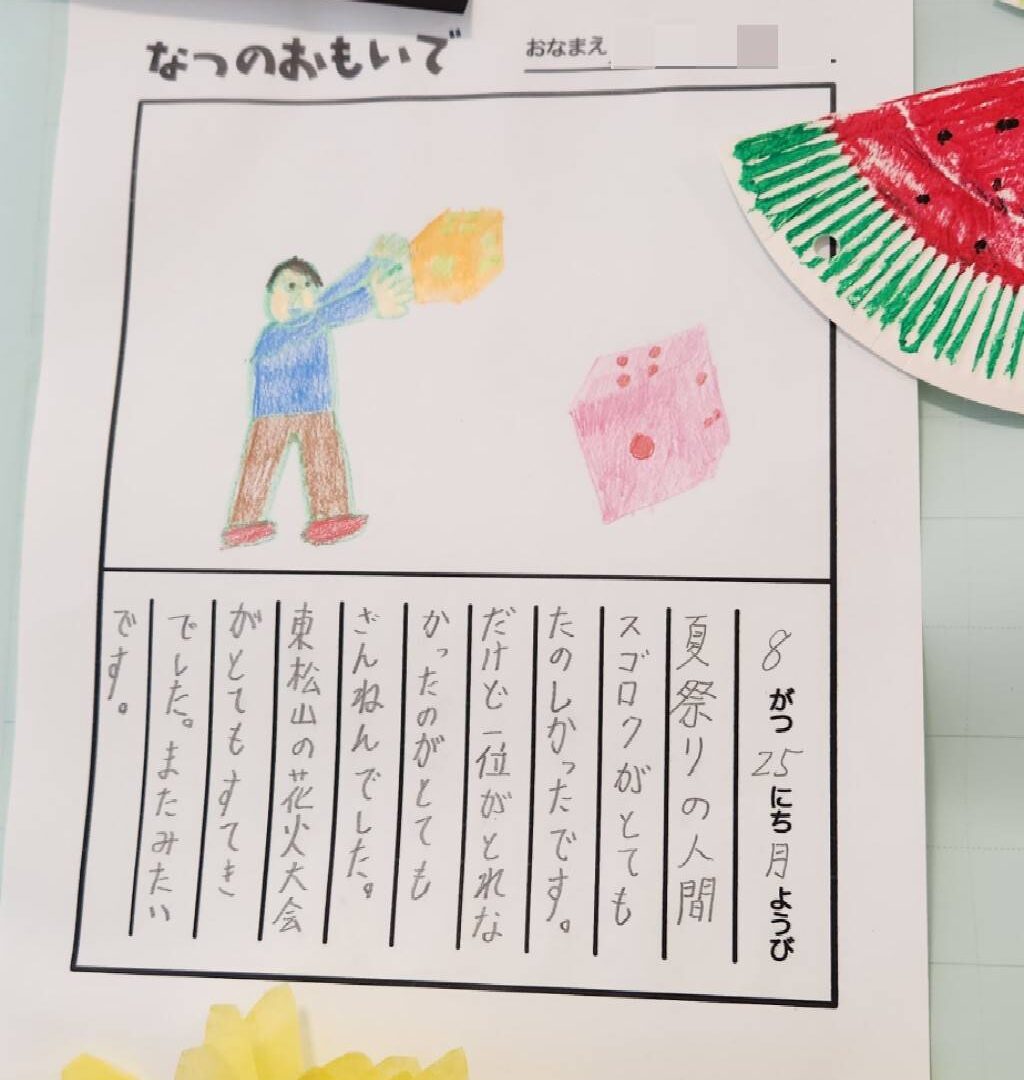 なつのおもいで
おなまえ
8がつ25にち月ようび
夏祭りの人間
スゴロクがとても
たのしかったです。
だけど一位がとれな
かったのがとても
ざんねんでした。
東松山の花火大会
がとてもすてき
でした。またみたい
です。